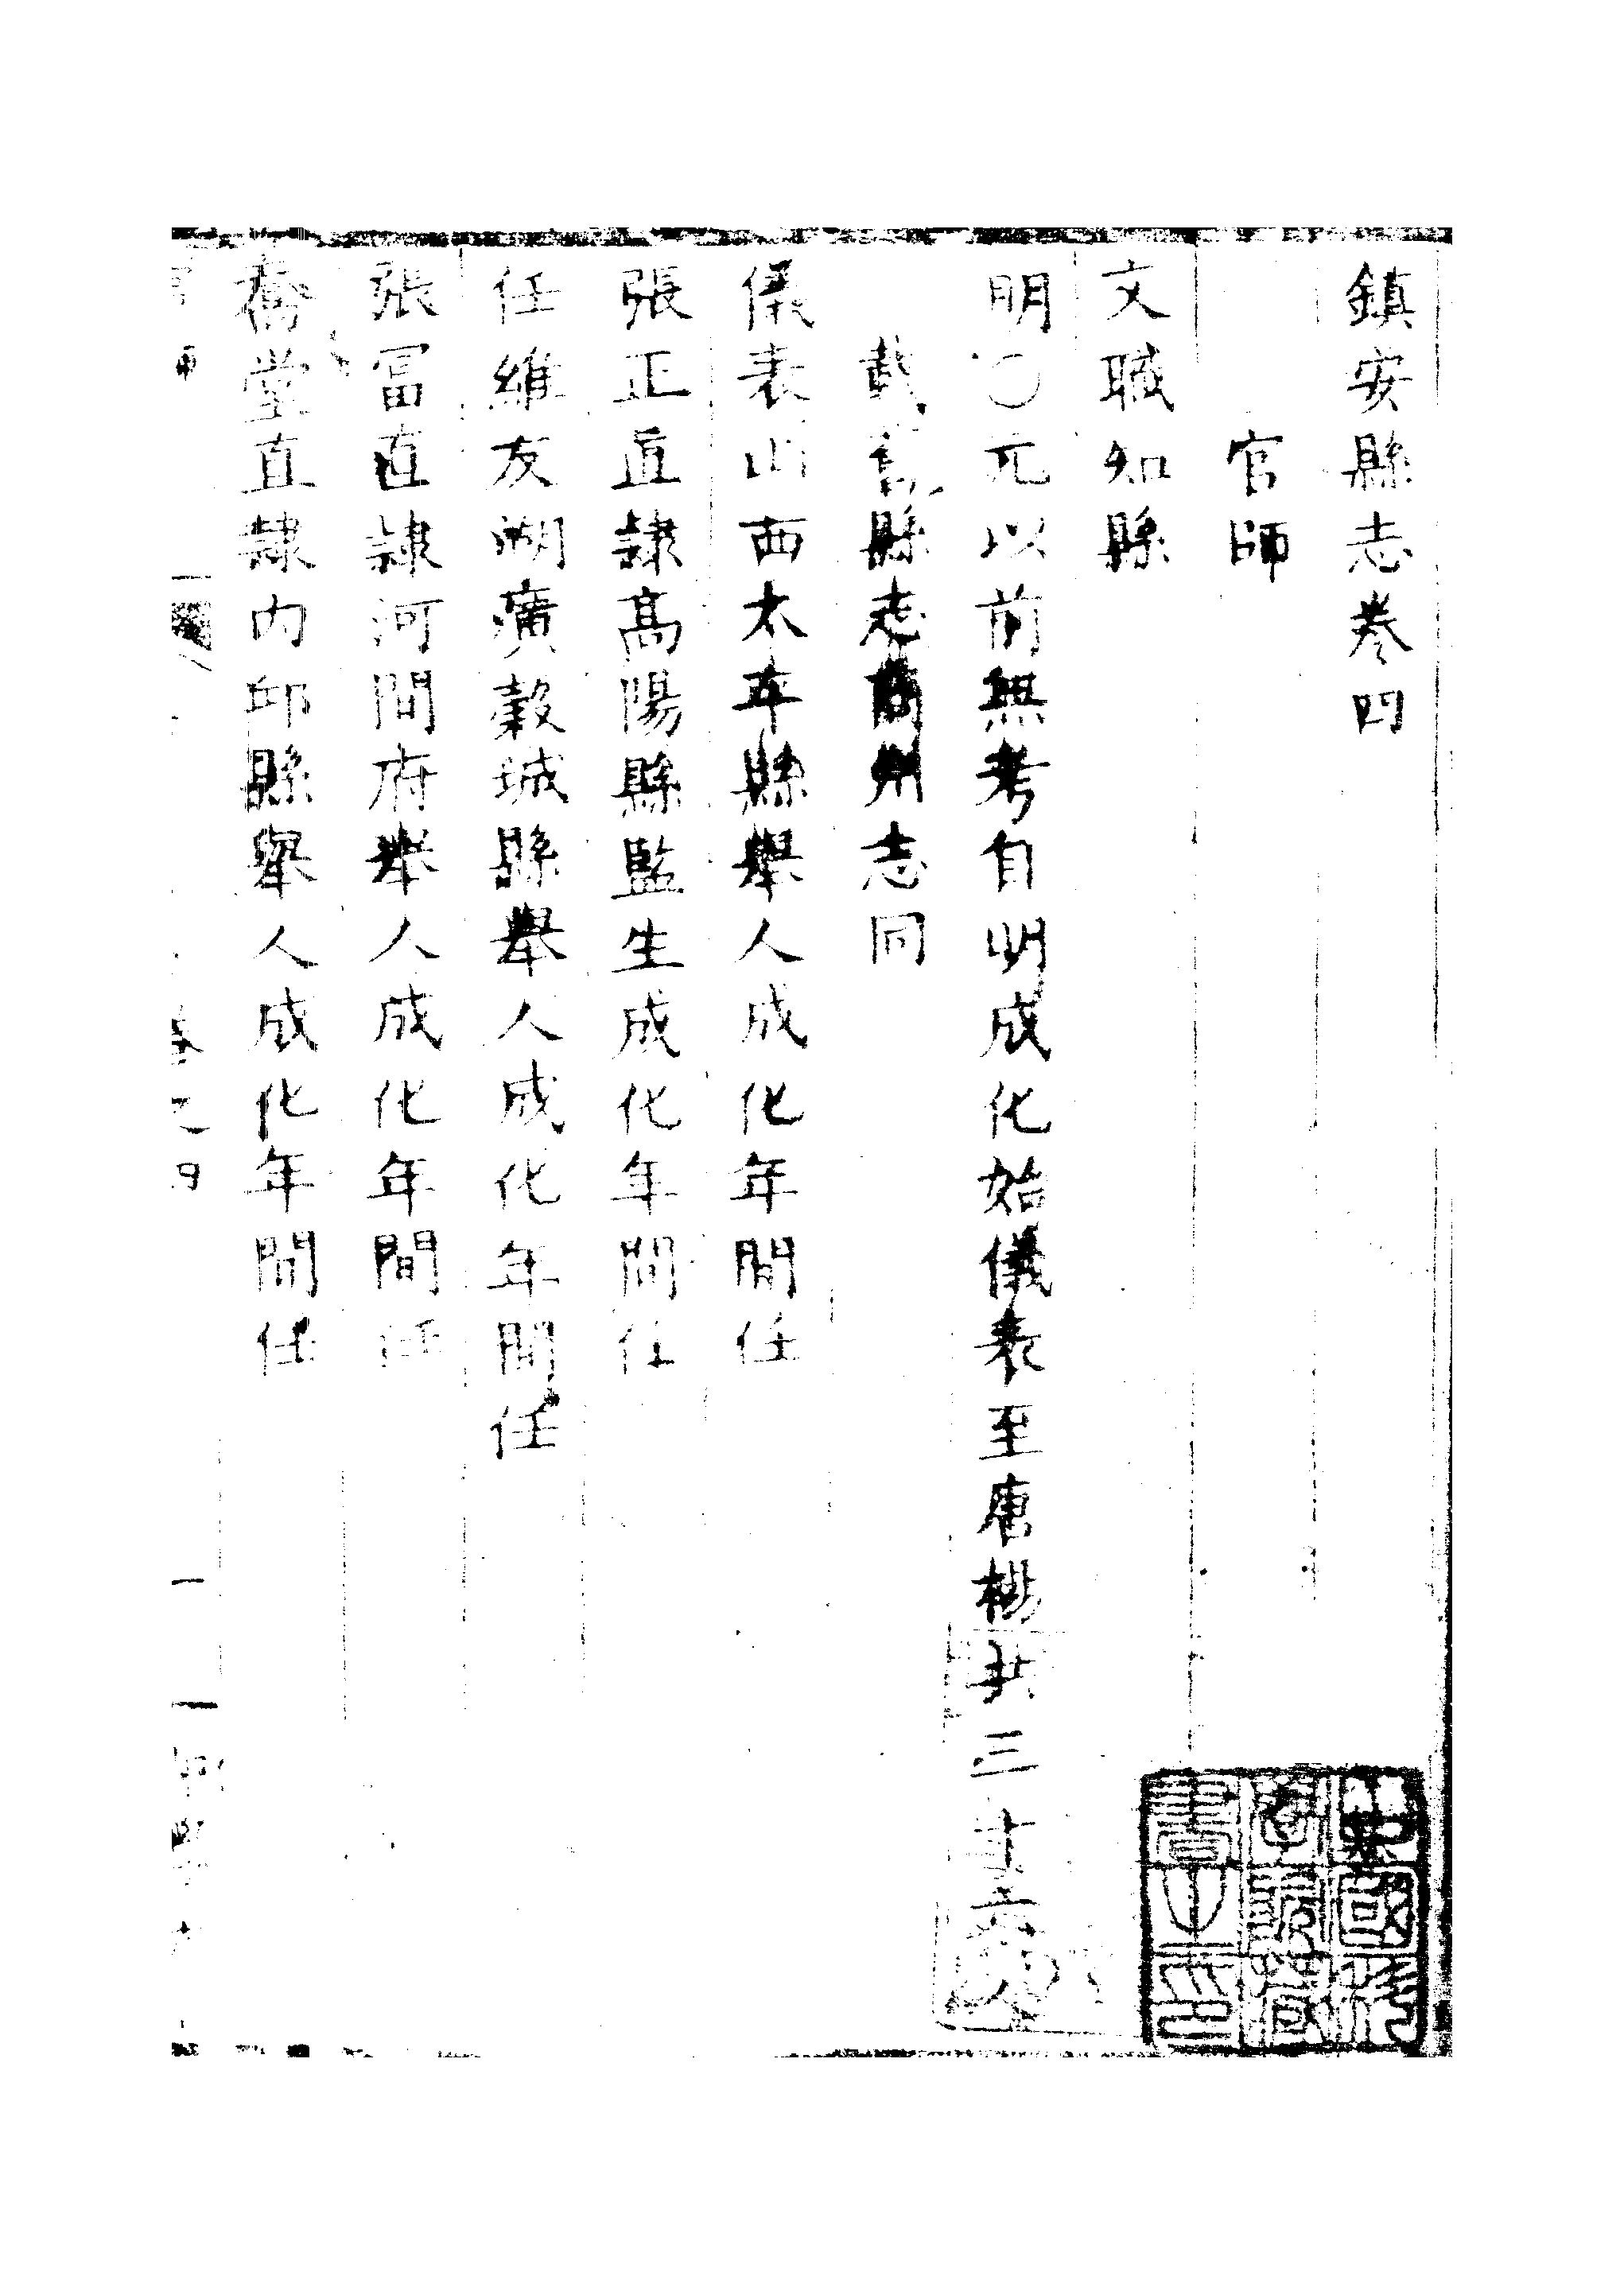 鎮安縣志卷四
官師
文職知縣
明〇元以前無考自明成化始儀表至唐楊共三十六
縣志商州志同
儀表山西太平縣舉人成化年間任
張正直隸高陽縣監生成化年間任
任維友湖廣穀城縣舉人成化年間任
張冨直隸河間府舉人成化年間任
喬堂直隸內邱縣舉人成化年間任
卷之四